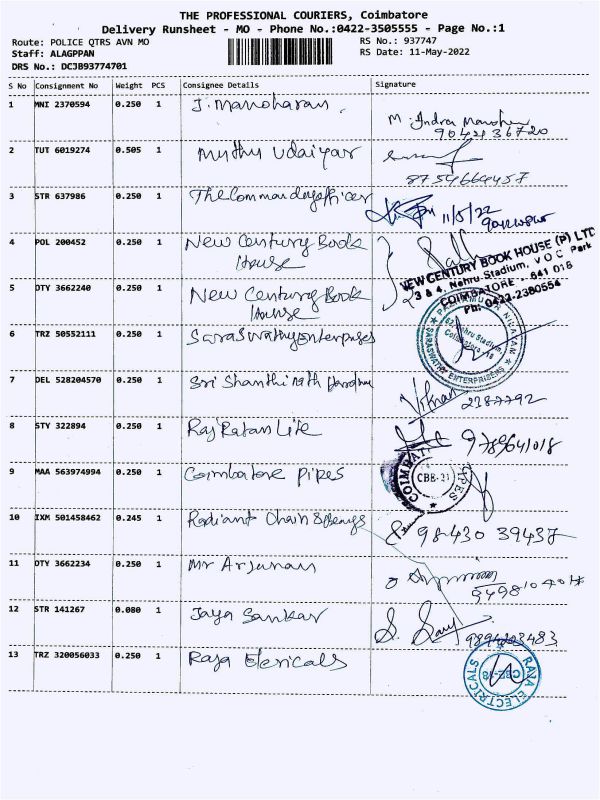 THE PROFESSIONAL COURIERS, Coimbatore
Delivery Runsheet - MO - Phone No.:0422-3505555 - Page No.:1
Route: POLICE QTRS AVN MO RS No.: 937747
Staff: ALAGPPAN RS Date: 11-May-2022
DRS No.: DCJB93774701
S No Consignment No Weight PCS Consignee Details Signature
1 MNI 2370594 0.250 1 J. Manoharan M. Indra
2 TUT 6019274 0.505 1 Muthu Udaiyar
8754664457
3 STR 637986 0.250 1 The Commanding officer
11/5/22
4 POL 200452 0.250 1 New Century Book
House
NEW CENTURY BOOK HOUSE (P) LTD
3 & 4, Nehru Stadium, V O C Park
COIMBATORE - 641 018
Ph: 0422-2380554
5 DTY 3662240 0.250 1 New Century Book
House
6 TRZ 50552111 0.250 1 Saraswathy Enterprises
SARASWATHY ENTERPRISES
Nehru Stadium,
Coimbatore-18
7 DEL 528204570 0.250 1 Sri Shanthi nath
2387792
8 STY 322894 0.250 1 Raj Ratan Lite 9789641018
9 MAA 563974994 0.250 1 Coimbatore Pipes
CBE-21
10 IXM 501458462 0.245 1 Radiant Chain 98430 39437
11 DTY 3662234 0.250 1 Mr Arjunan
12 STR 141267 0.080 1 Jaya Sankar
13 TRZ 320056033 0.250 1 Raja Elericals
RAJA ELECTRICALS
CBE-18